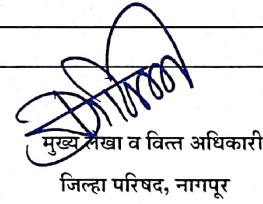 मुख्य लेखा व वित्त अधिकारी
जिल्हा परिषद, नागपूर